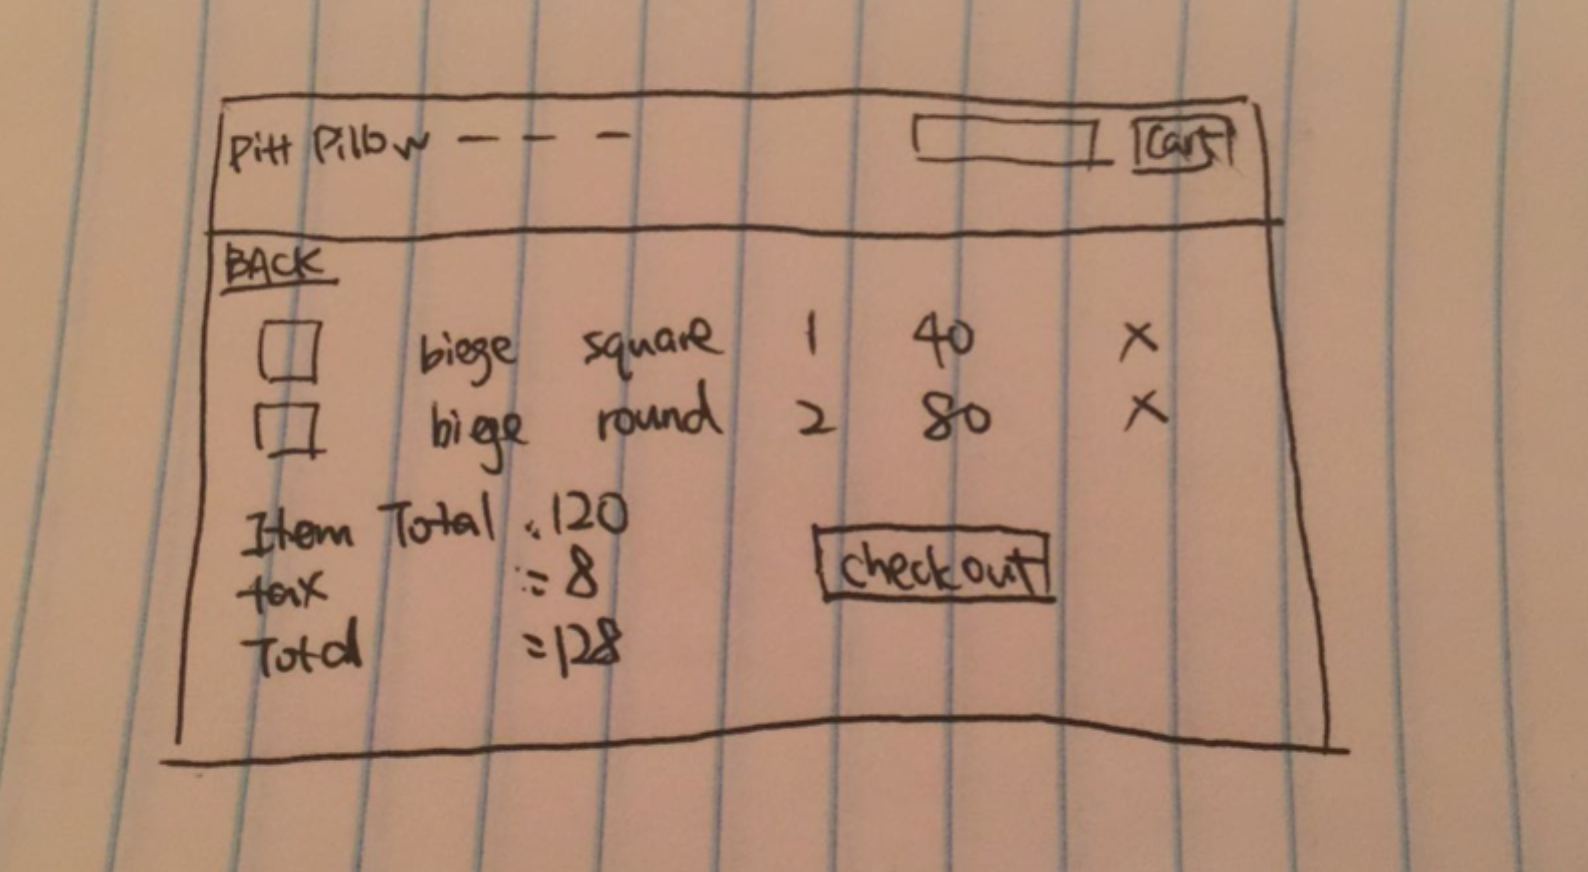 Pitt Pillow — — — Cart
BACK
biege square 1 40 X
biege round 2 80 X
Item Total : 120
tax := 8
Total = 128
checkout